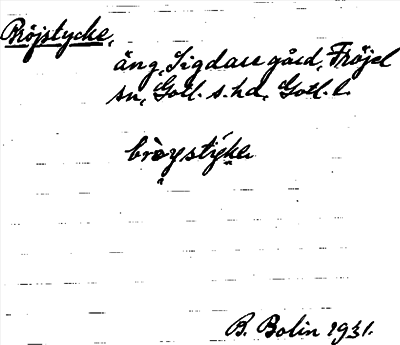 Bröjstycke,
äng, Sigdars gård, Fröjel
sn, Gotl. s. hd, Gotl. l.
bròystýke
B. Bolin 1931.